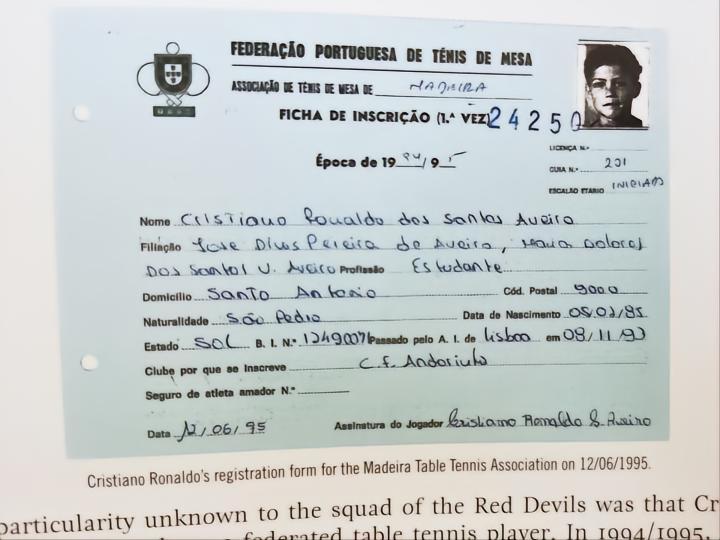 FEDERAÇÃO PORTUGUESA DE TÉNIS DE MESA
ASSOCIAÇÃO DE TÉNIS DE MESA DE MADEIRA
FICHA DE INSCRIÇÃO (1.ª VEZ) 24250
LICENÇA N.º
Época de 1994/95
GUIA N.º 201
ESCALÃO ETARIO INICIADO
Nome Cristiano Ronaldo dos Santos Aveiro
Filiação Jose Dinis Pereira de Aveiro, Maria Dolores
Dos Santos V. Aveiro Profissão Estudante
Domicílio Santo Antonio Cód. Postal 9000
Naturalidade São Pedro Data de Nascimento 05.02/85
Estado SOL B. I. N.º Passado pelo A. I. de Lisboa em 08/11/93
Clube por que se Inscreve C.F. Andorinha
Seguro de atleta amador N.º
Data 12/06/95 Assinatura do Jogador Cristiano Ronaldo S. Aveiro
Cristiano Ronaldo's registration form for the Madeira Table Tennis Association on 12/06/1995.
particularity unknown to the squad of the Red Devils was that Cr
federated table tennis player. In 1994/1995,